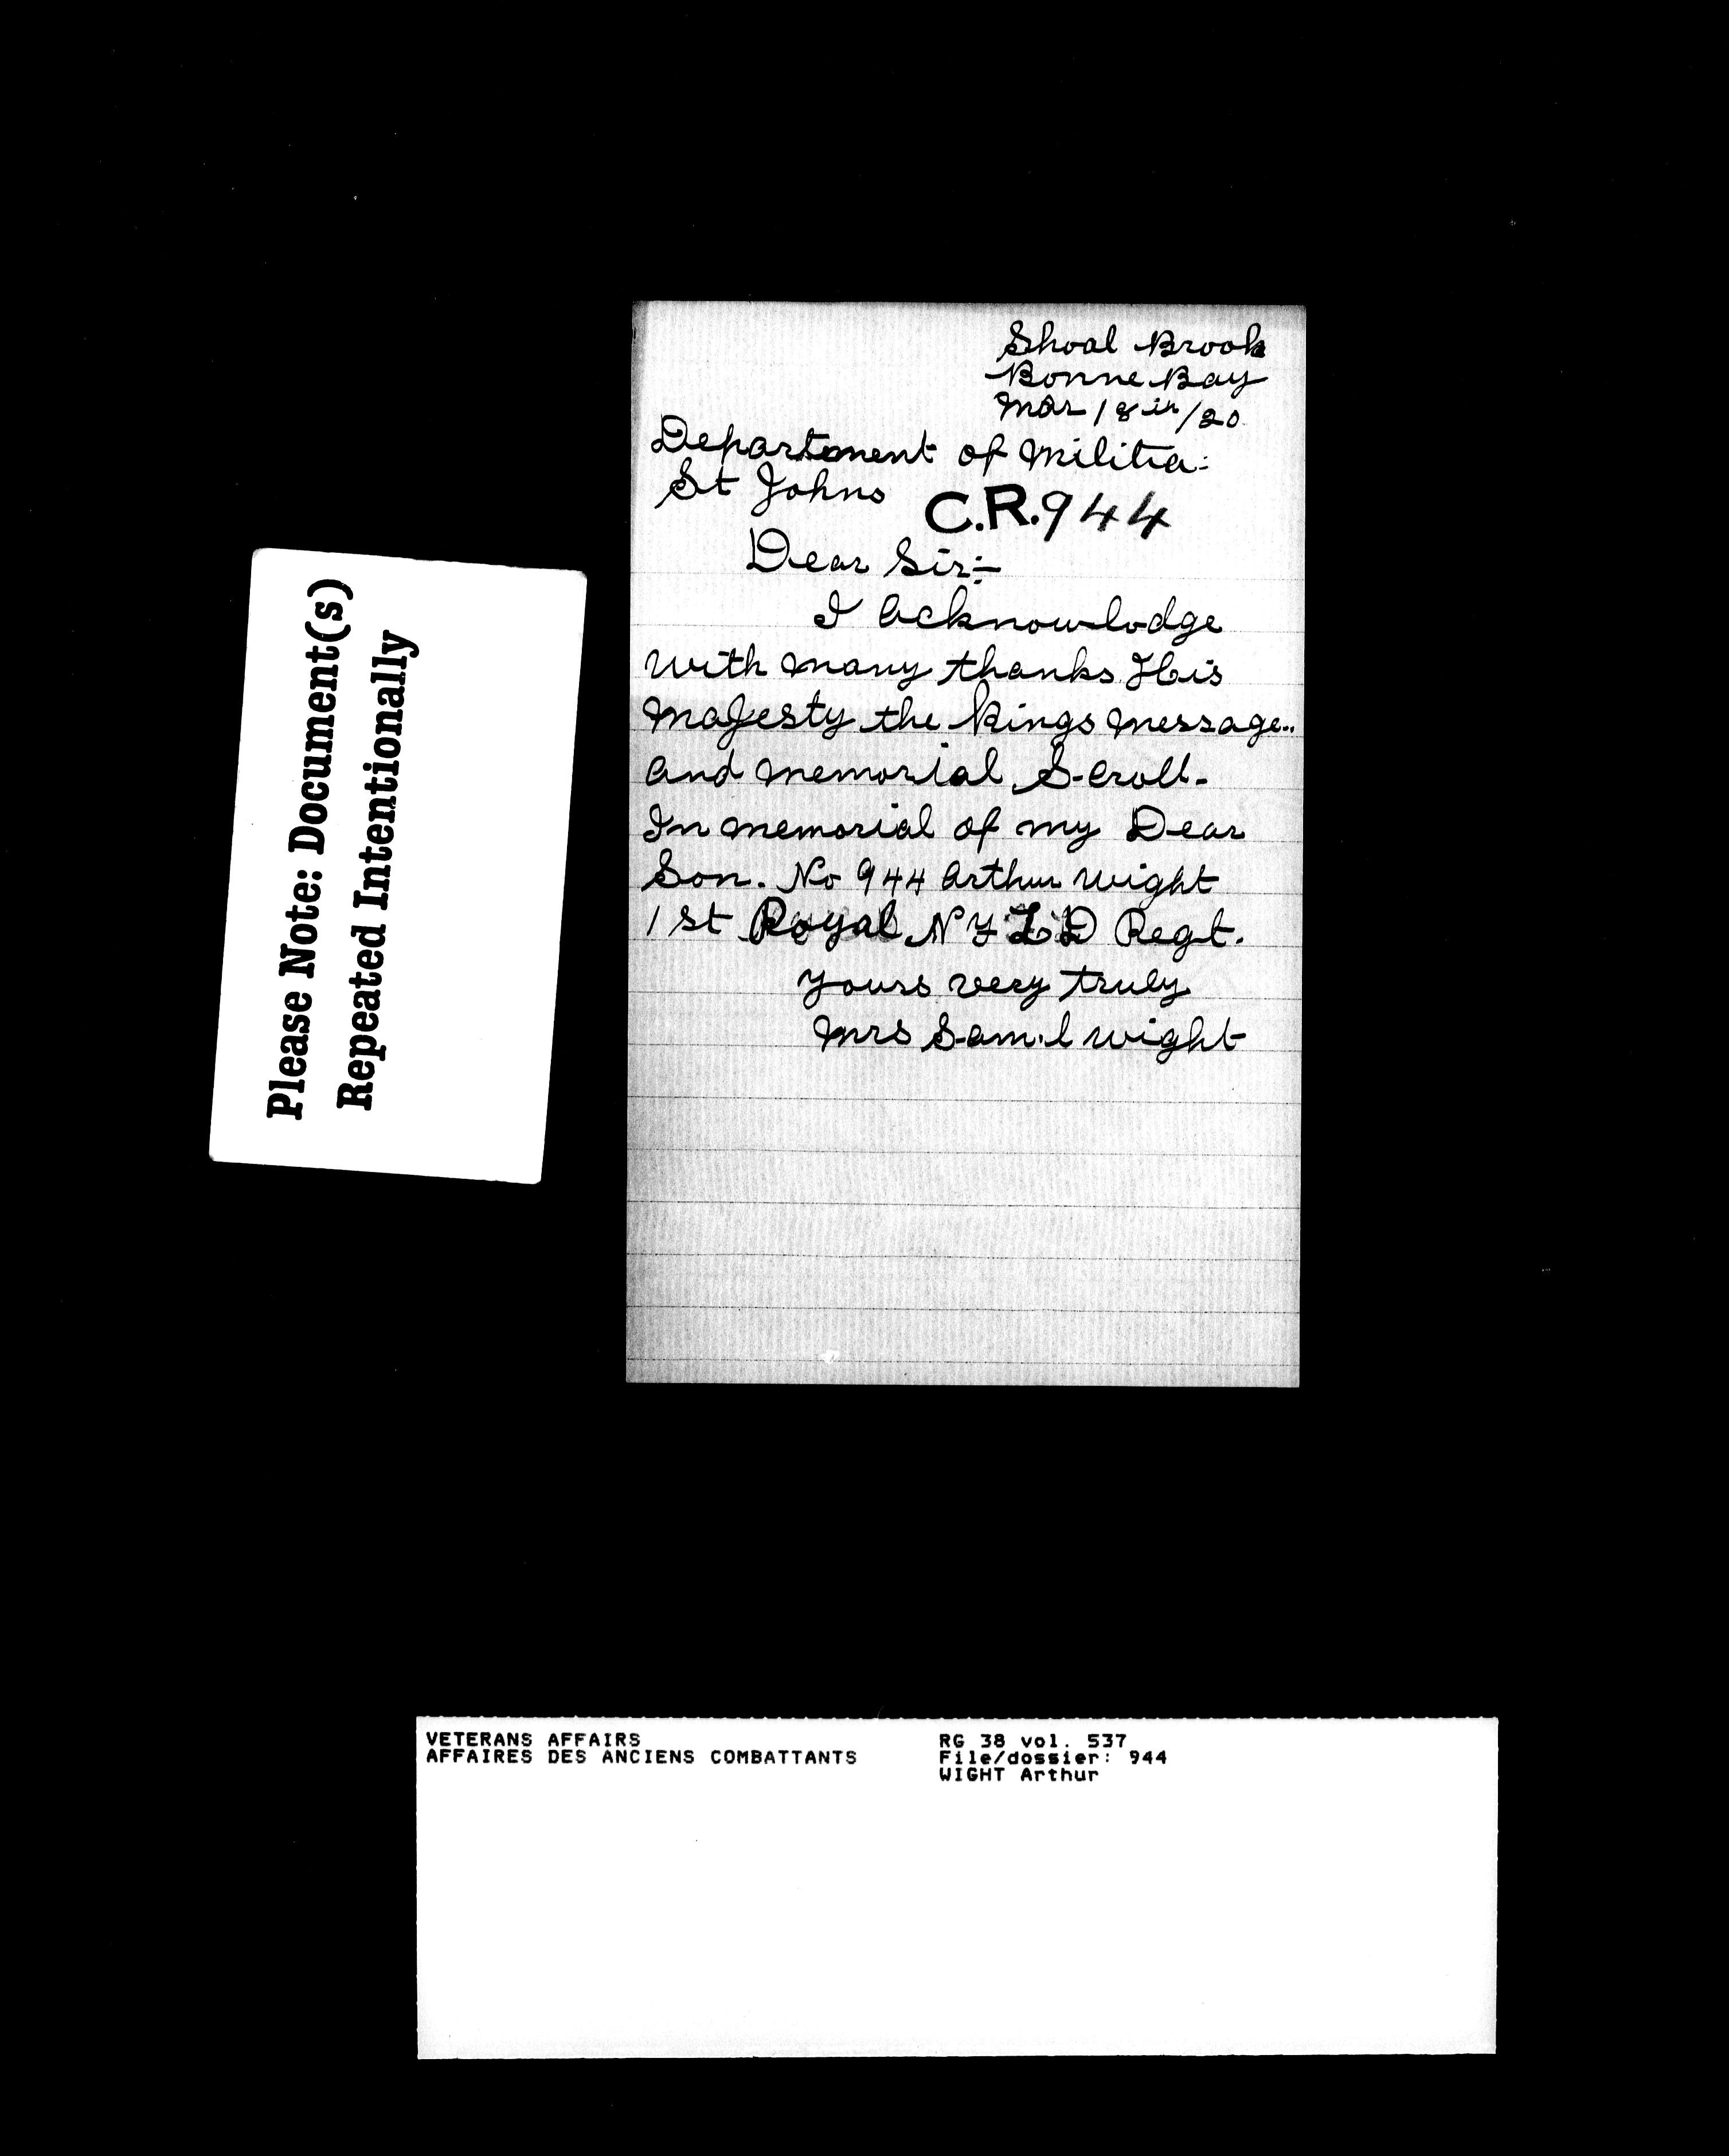 Shoal Brook
Bonne Bay
Mar 18th/20
Department of Militia:
St Johns
C.R.944
Dear Sir:-
I acknowlodge
with many thanks His
Majesty the Kings message..
and memorial Scroll-
In memorial of my Dear
Son. No 944 Arthur Wight
1st Royal NFLD Regt.
yours very truly
Mrs Sam.l Wight
Please Note: Document(s)
Repeated Intentionally
VETERANS AFFAIRS
AFFAIRES DES ANCIENS COMBATTANTS
RG 38 vol. 537
File/dossier: 944
WIGHT Arthur